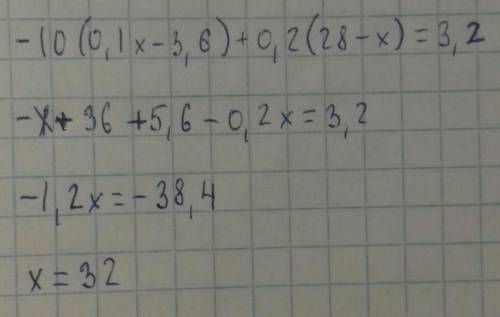 -10(0,1x-3,6)+0,2(28-x)=3,2
-x+36+5,6-0,2x=3,2
-1,2x=-38,4
x=32